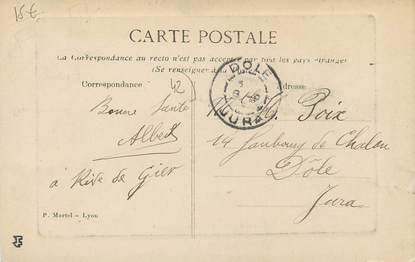 15 €
CARTE POSTALE
La Correspondance au recto n'est pas acceptée par tous les pays étrangers
(Se renseigner
Correspondance
Adresse
42
DOLE
JURA
Bonne Santé
Albert
à Rive de Gier
G. Poix
14 Faubourg de Chalon
Dôle
Jura
P. Martel - Lyon